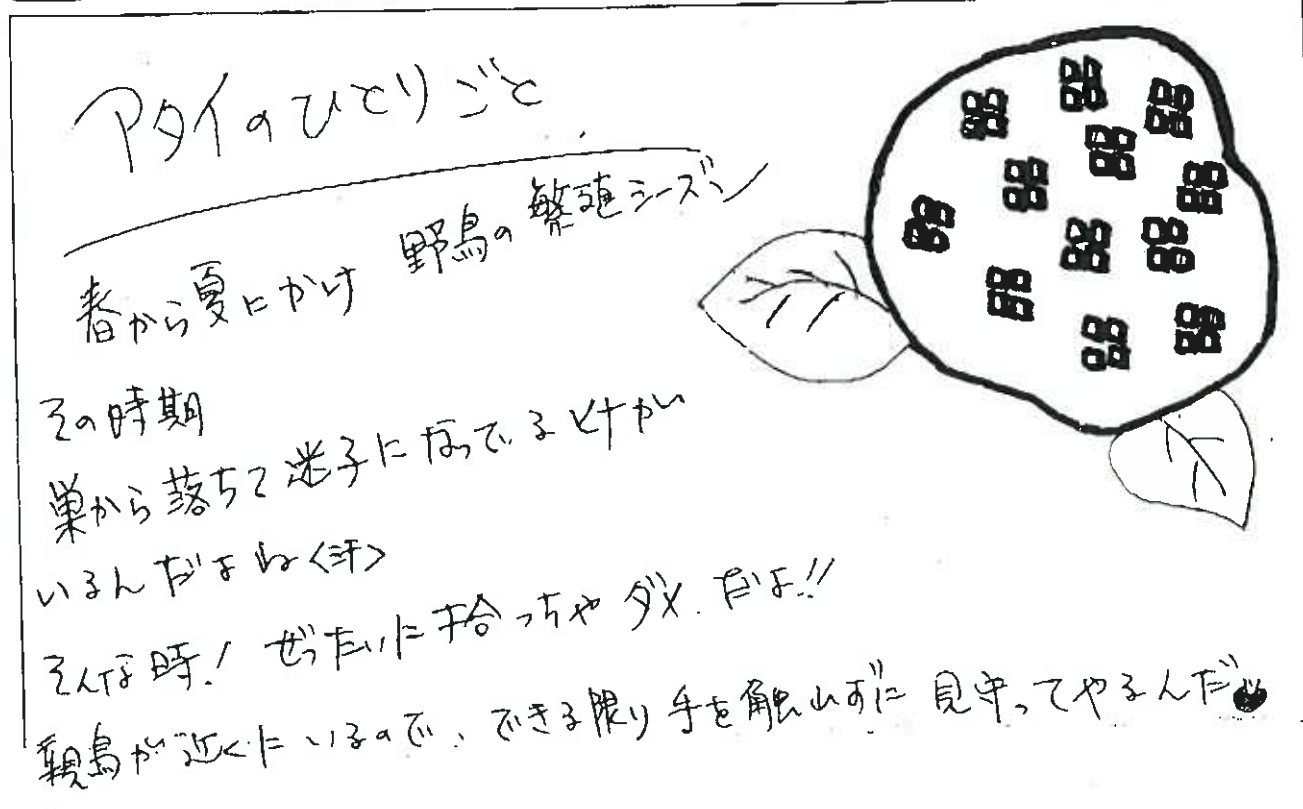 アタイのひとりごと
春から夏にかけ 野鳥の繁殖シーズン
その時期
巣から落ちて迷子になってるヒナが
いるんだよね<汗>
そんな時! ぜったいに拾っちゃダメだよ!!
親鳥が近くにいるので、できる限り手を触れずに見守ってやるんだ